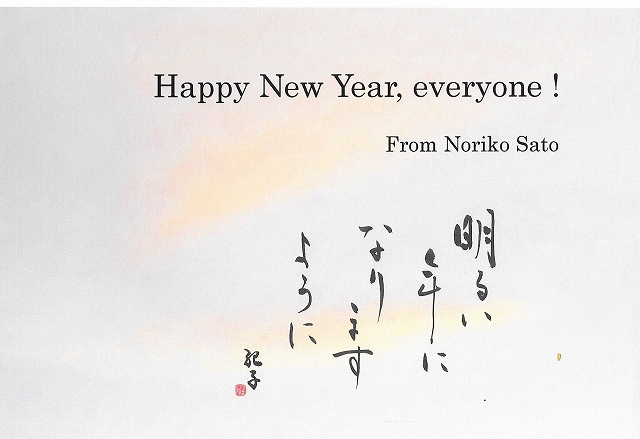 Happy New Year, everyone !
From Noriko Sato
明るい
年に
なり
ます
ように
紀子